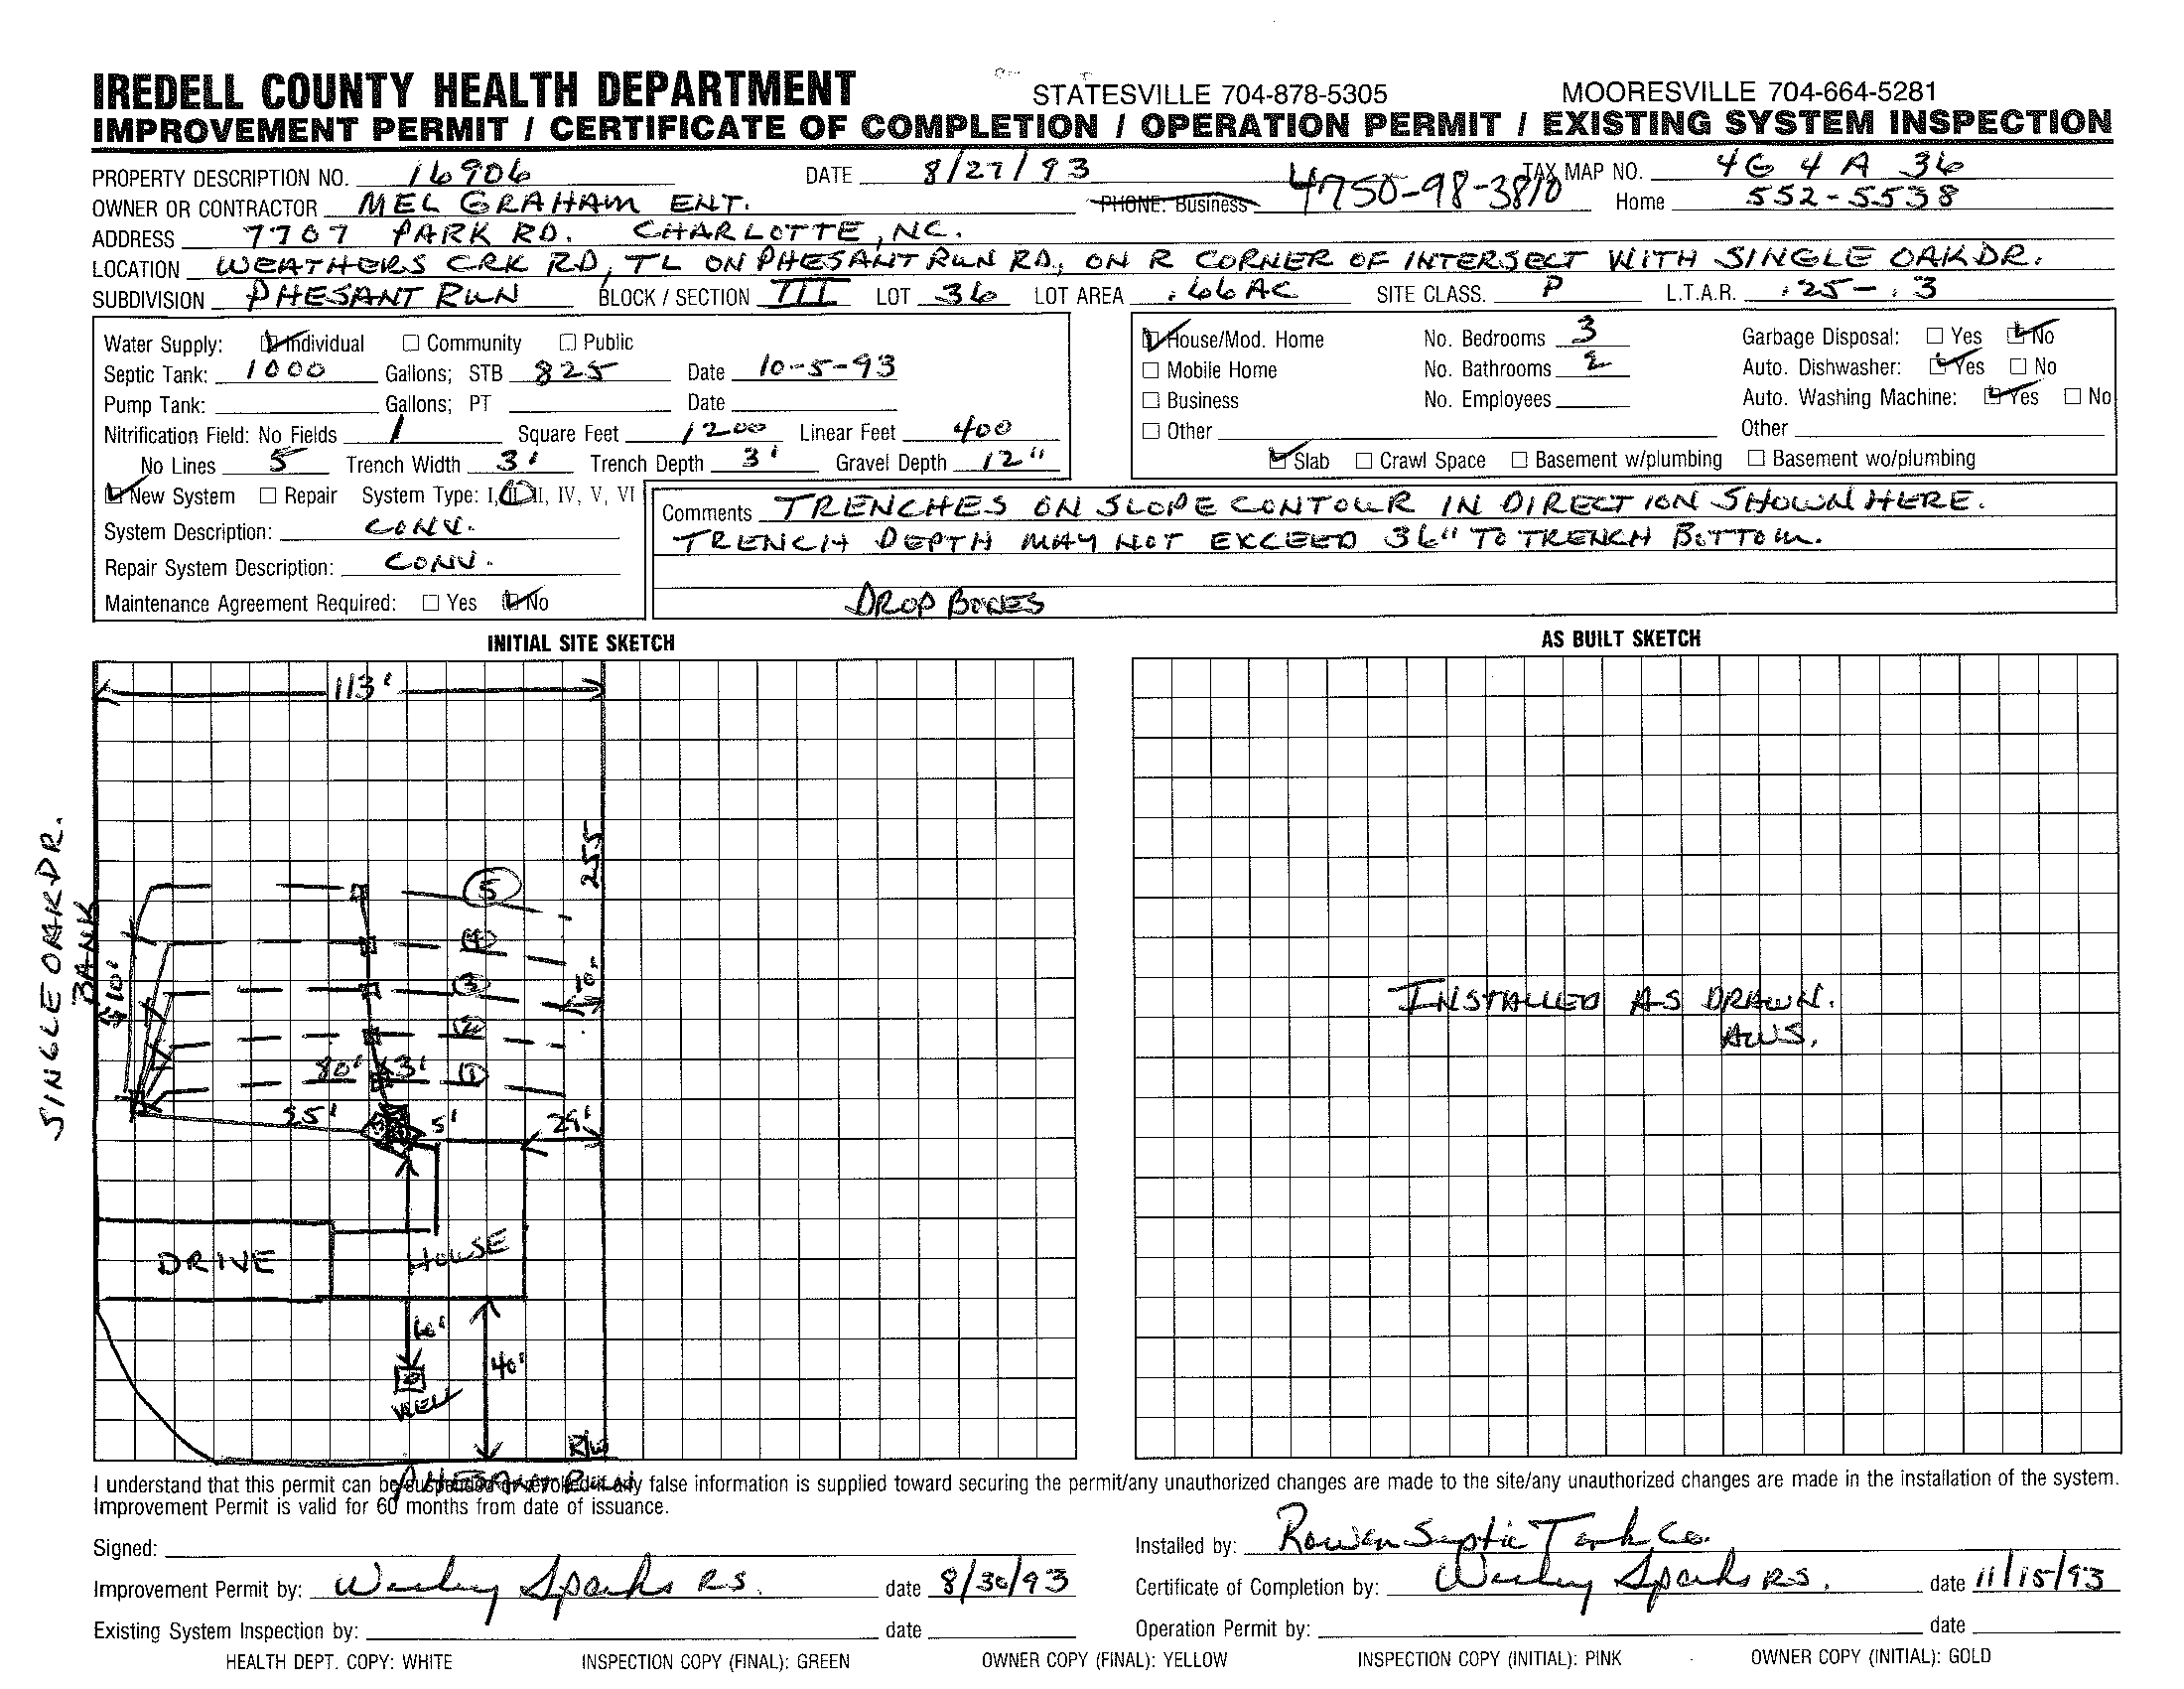 IREDELL COUNTY HEALTH DEPARTMENT STATESVILLE 704-878-5305 MOORESVILLE 704-664-5281
IMPROVEMENT PERMIT / CERTIFICATE OF COMPLETION / OPERATION PERMIT / EXISTING SYSTEM INSPECTION
PROPERTY DESCRIPTION NO. 16906 DATE 8/27/93 TAX MAP NO. 4G 4 A 36
OWNER OR CONTRACTOR MEL GRAHAM ENT. PHONE: Business 4750-98-3810 Home 552-5538
ADDRESS 7707 PARK RD. CHARLOTTE, NC.
LOCATION WEATHERS CRK RD, TL ON PHESANT RUN RD., ON R CORNER OF INTERSECT WITH SINGLE OAK DR.
SUBDIVISION PHESANT RUN BLOCK / SECTION III LOT 36 LOT AREA .66 AC SITE CLASS. P L.T.A.R. .25-.3
Water Supply: Individual Community Public
Septic Tank: 1000 Gallons; STB 825 Date 10-5-93
Pump Tank: Gallons; PT Date
Nitrification Field: No Fields 1 Square Feet 1200 Linear Feet 400
No Lines 5 Trench Width 3' Trench Depth 3' Gravel Depth 12"
House/Mod. Home No. Bedrooms 3 Garbage Disposal: Yes No
Mobile Home No. Bathrooms 2 Auto. Dishwasher: Yes No
Business No. Employees Auto. Washing Machine: Yes No
Other Other
Slab Crawl Space Basement w/plumbing Basement wo/plumbing
New System Repair System Type: I, II, III, IV, V, VI
System Description: CONV.
Repair System Description: CONV.
Maintenance Agreement Required: Yes No
Comments TRENCHES ON SLOPE CONTOUR IN DIRECTION SHOWN HERE.
TRENCH DEPTH MAY NOT EXCEED 36" TO TRENCH BOTTOM.
DROP BOXES
INITIAL SITE SKETCH
113'
255
SINGLE OAK DR.
BANK
10'
5
4
3
10'
2
80' 3' 1
55' 5' 29'
DRIVE HOUSE
40'
WELL
R/W
PHESANT RUN
AS BUILT SKETCH
INSTALLED AS DRAWN.
AWS.
I understand that this permit can be suspended or revoked if any false information is supplied toward securing the permit/any unauthorized changes are made to the site/any unauthorized changes are made in the installation of the system.
Improvement Permit is valid for 60 months from date of issuance.
Signed:
Improvement Permit by: Wesley Sparks R.S. date 8/30/93
Existing System Inspection by: date
Installed by: Rowan Septic Tank Co.
Certificate of Completion by: Wesley Sparks R.S. date 11/15/93
Operation Permit by: date
HEALTH DEPT. COPY: WHITE INSPECTION COPY (FINAL): GREEN OWNER COPY (FINAL): YELLOW INSPECTION COPY (INITIAL): PINK OWNER COPY (INITIAL): GOLD